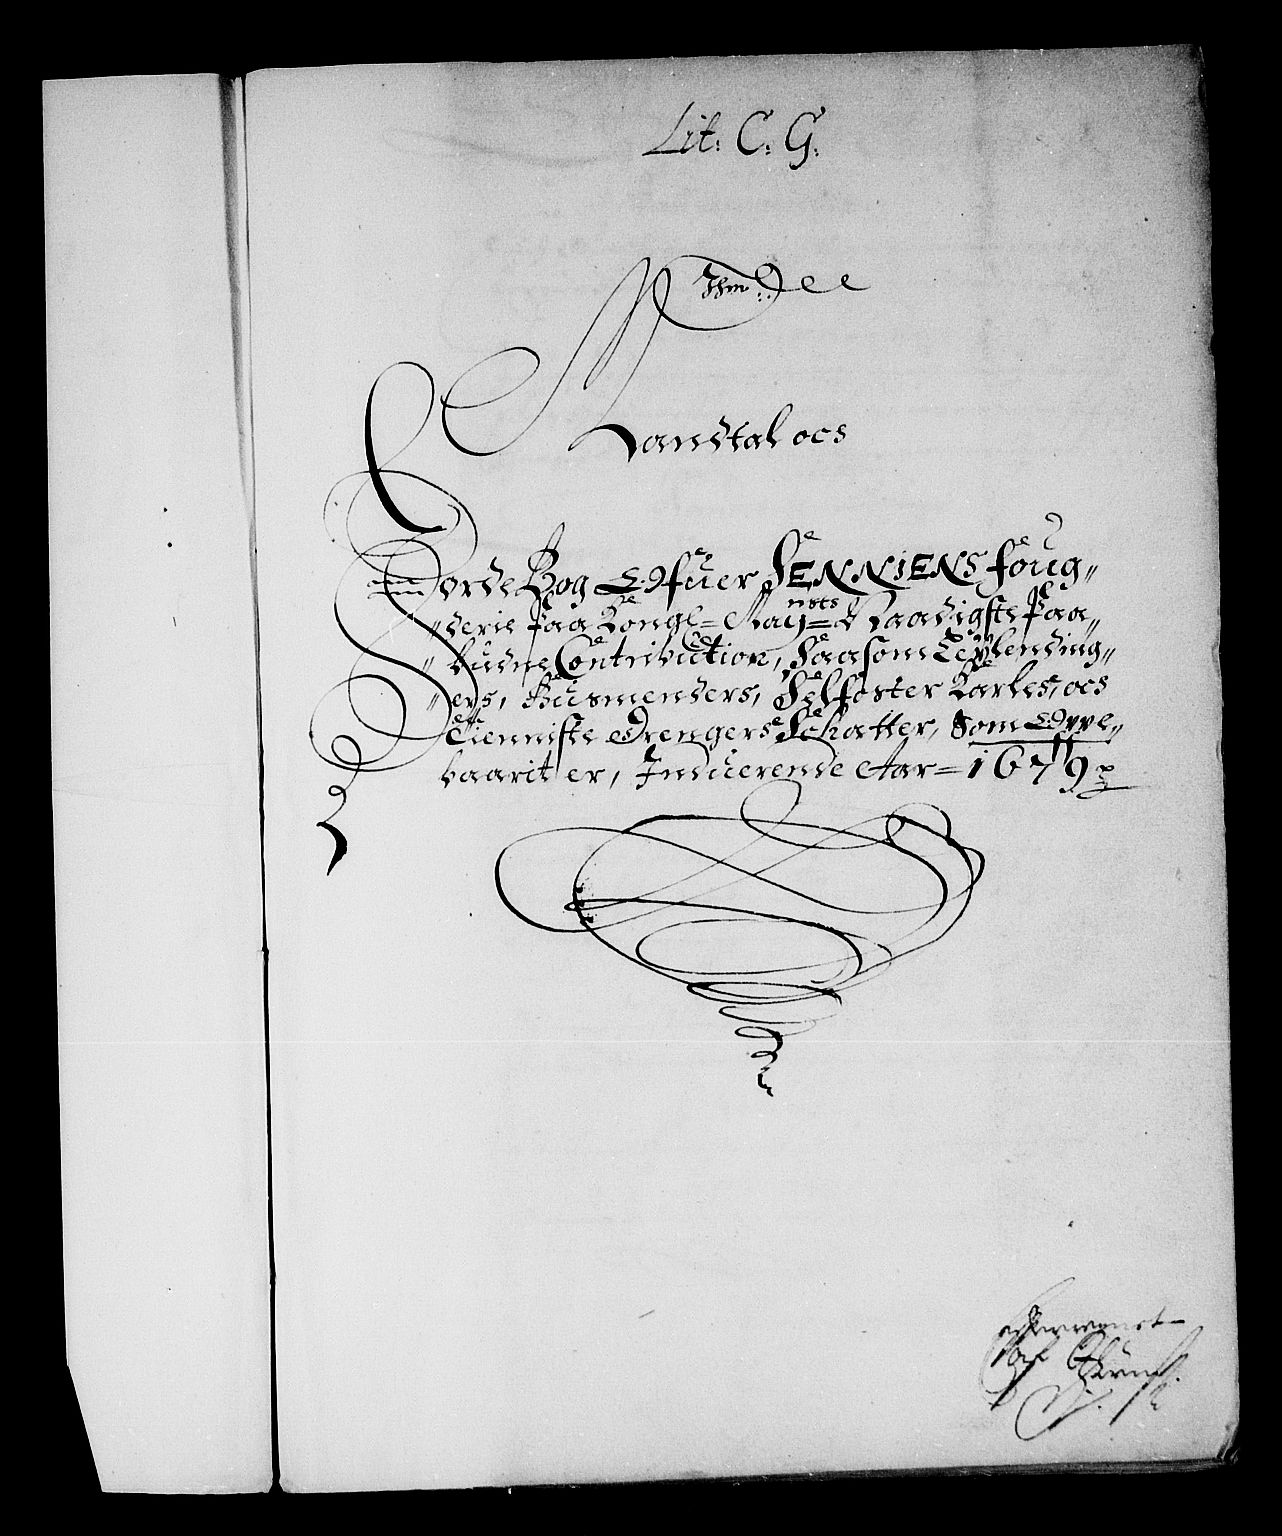 Lit: C: G:
Mandtal ocs
Jorde Bog Ofuer SENNIENS foug„
„derie Paa Kongl= May=ts Naadigste Paa„
„budne Contribution, Saasom Leylending„
„ers, Husmenders, Selfoster Karles, ocs
Tienniste Drengers Schatter, Som Oppe„
baarit er, Induerende Aar= 1679